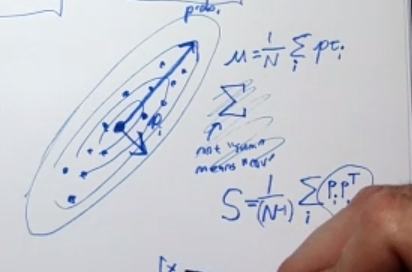 prob.
μ = 1/N Σ_i pt_i
P_i
Σ
not "sum"
means "cov"
S = 1/(N-1) Σ_i P_i P_i^T